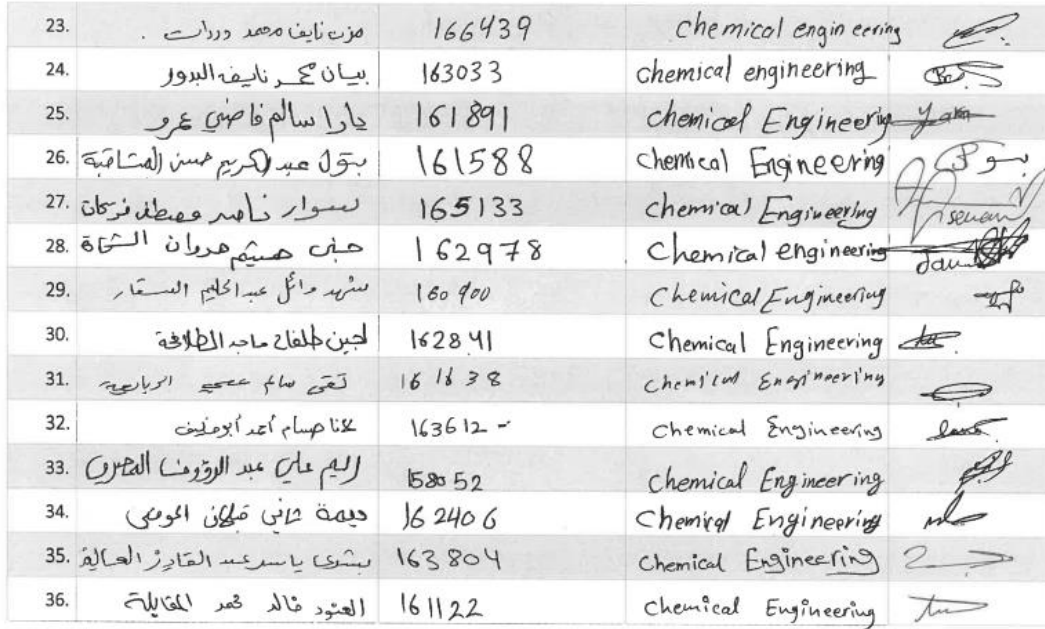 23. مزن نايف محمد وردات . 166439 chemical engineering
24. بيان محمد نايف البدور 163033 chemical engineering
25. يارا سالم فاضي عمرو 161891 chemical Engineering
26. بتول عبدالكريم حسن المشاقبة 161588 chemical Engineering بتول
27. نسوار ناصر مصطفى فريحات 165133 chemical Engineering
28. حنى هيثم مروان 162978 chemical engineering
29. شهد وائل عبدالحليم الستار 160900 Chemical Engineering
30. لجين طلفاح ماجد الطلافحة 162841 Chemical Engineering
31. تقى سالم 161638 Chemical Engineering
32. حسام أحمد 163612 - Chemical Engineering
33. ريم علي عبد الرؤوف المصري 158052 Chemical Engineering
34. ديمة هاني قبلان المومني 162406 Chemical Engineering
35. بشرى ياسر عبد القادر 163804 Chemical Engineering
36. العنود خالد محمد المقابلة 161122 Chemical Engineering